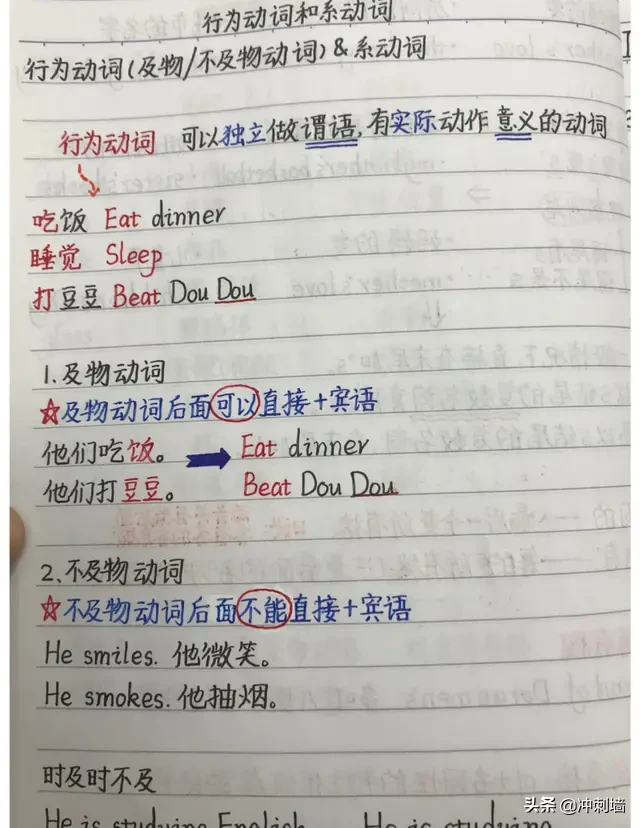 行为动词和系动词
行为动词(及物/不及物动词)&系动词
行为动词 可以独立做谓语,有实际动作意义的动词
吃饭 Eat dinner
睡觉 Sleep
打豆豆 Beat Dou Dou
1.及物动词
☆及物动词后面可以直接+宾语
他们吃饭。 Eat dinner
他们打豆豆。 Beat Dou Dou
2.不及物动词
☆不及物动词后面不能直接+宾语
He smiles. 他微笑。
He smokes. 他抽烟。
时及时不及
He is studying English He is studying
头条 @冲刺墙